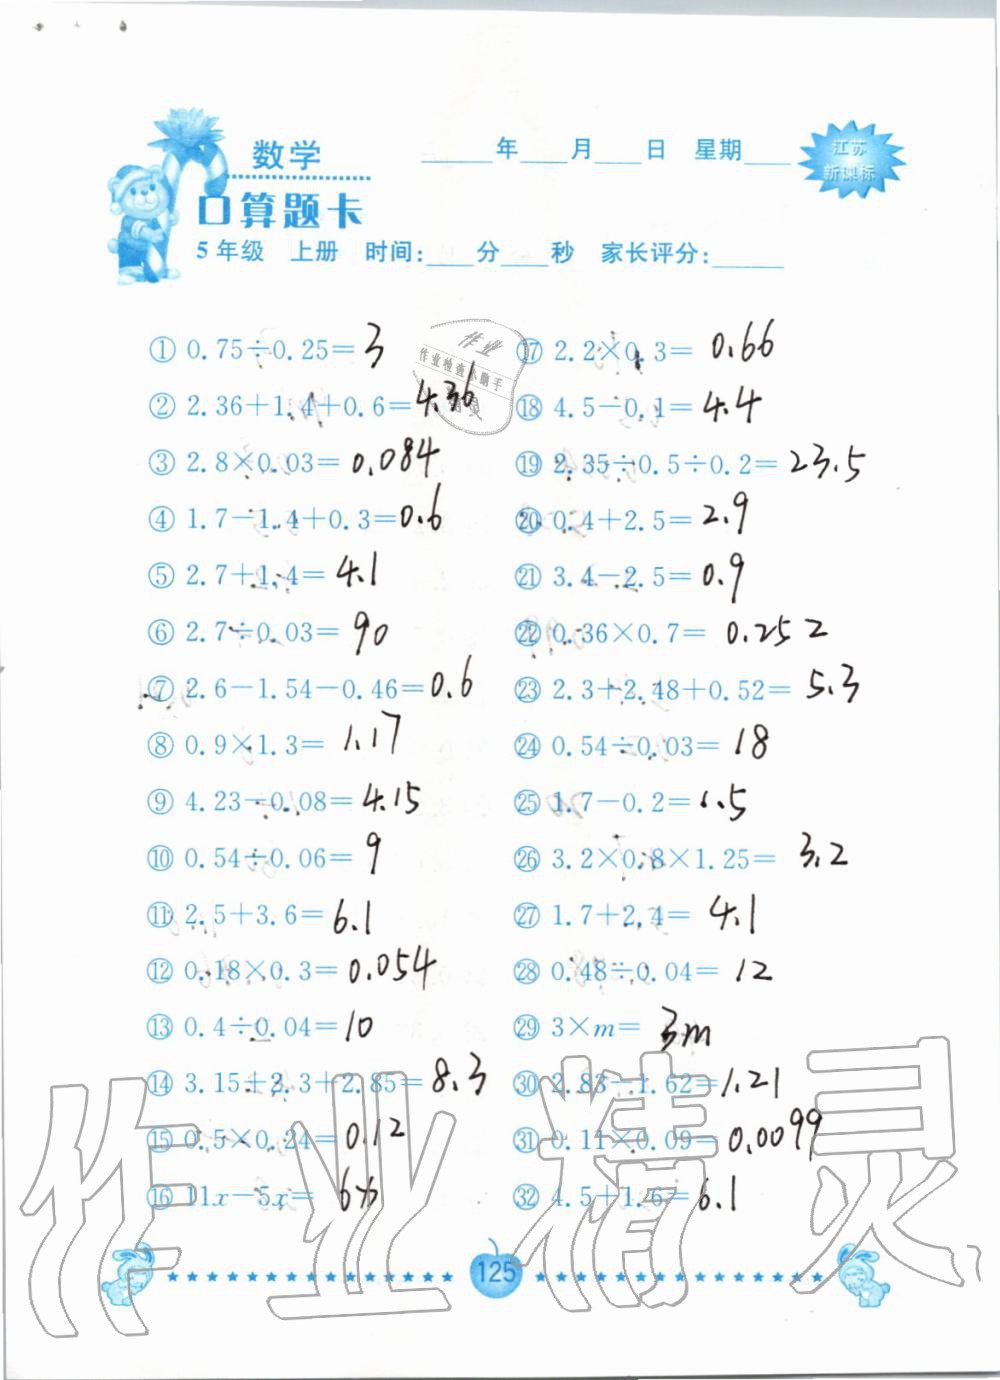 数学
____年____月____日 星期____
江苏
新课标
口算题卡
5年级 上册 时间:____分____秒 家长评分:____
① 0.75÷0.25=3
② 2.36+1.4+0.6=4.36
③ 2.8×0.03=0.084
④ 1.7-1.4+0.3=0.6
⑤ 2.7+1.4=4.1
⑥ 2.7÷0.03=90
⑦ 2.6-1.54-0.46=0.6
⑧ 0.9×1.3=1.17
⑨ 4.23-0.08=4.15
⑩ 0.54÷0.06=9
⑪ 2.5+3.6=6.1
⑫ 0.18×0.3=0.054
⑬ 0.4÷0.04=10
⑭ 3.15+2.3+2.85=8.3
⑮ 0.5×0.24=0.12
⑯ 11x-5x=6x
⑰ 2.2×0.3=0.66
⑱ 4.5-0.1=4.4
⑲ 2.35÷0.5÷0.2=23.5
⑳ 0.4+2.5=2.9
㉑ 3.4-2.5=0.9
㉒ 0.36×0.7=0.252
㉓ 2.3+2.48+0.52=5.3
㉔ 0.54÷0.03=18
㉕ 1.7-0.2=1.5
㉖ 3.2×0.8×1.25=3.2
㉗ 1.7+2.4=4.1
㉘ 0.48÷0.04=12
㉙ 3×m=3m
㉚ 2.83-1.62=1.21
㉛ 0.11×0.09=0.0099
㉜ 4.5+1.6=6.1
作业
作业检查小助手
作业精灵
125